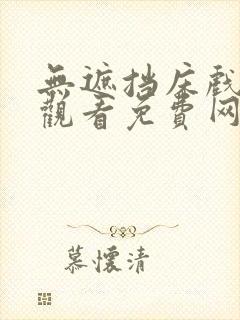 無遮挡床戲
觀看免費网
慕懷清